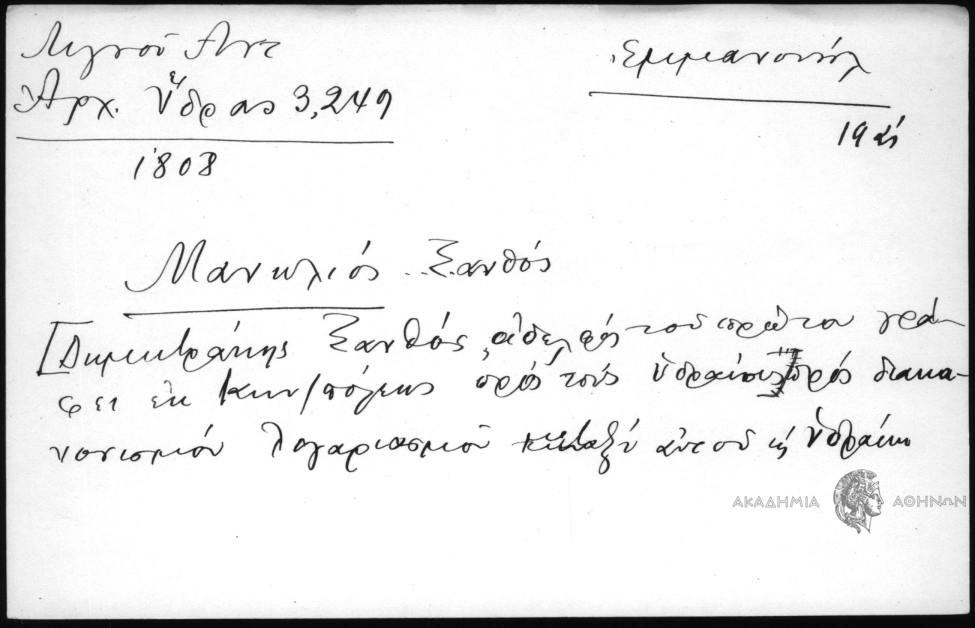 Λιγνού Αντ
Ἐμμανουήλ
Ἀρχ. Ὕδρας 3,249
19
1808
Μανωλιός Ξανθός
[Δημητράκης Ξανθός, ἀδελφός τοῦ πρώτου γρά-
φει ἐκ Κων/πόλεως πρός τούς Ὑδραίους πρός διακα-
νονισμόν λογαριασμοῦ μεταξύ αὐτοῦ κ Ὑδραίων
ΑΚΑΔΗΜΙΑ ΑΘΗΝΩΝ